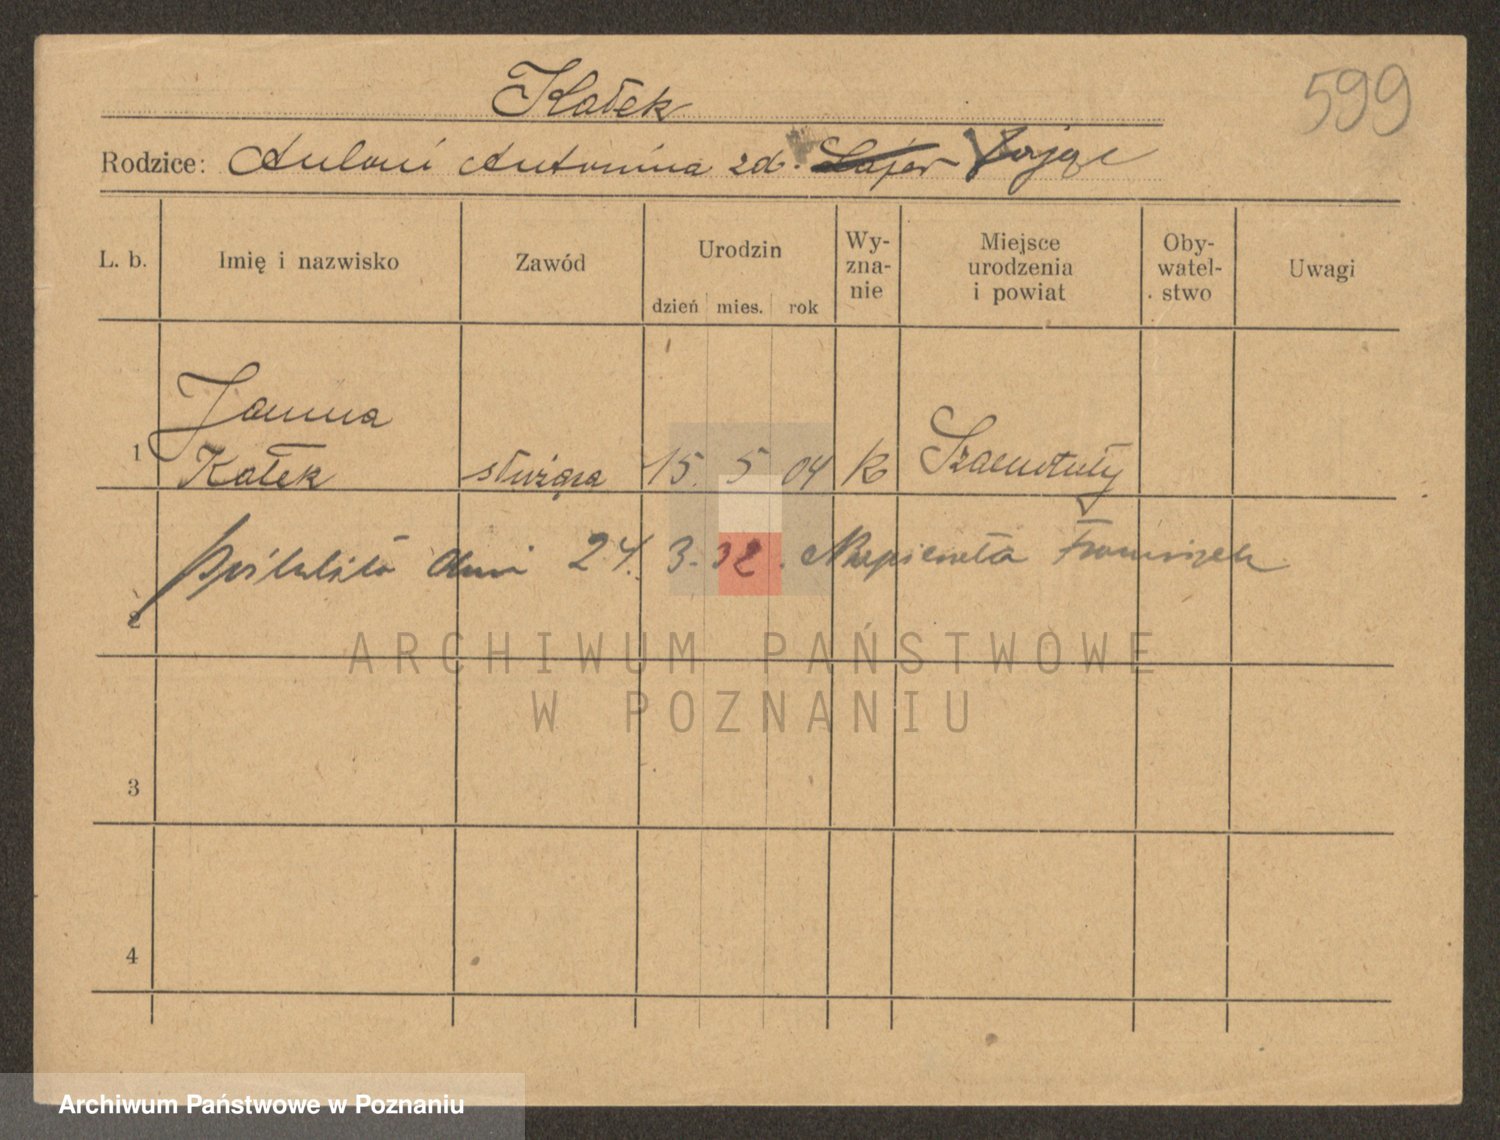 599
Kałek
Rodzice: Antoni Antonina zd. Zając
L. b. Imię i nazwisko Zawód Urodzin Wy-zna-nie Miejsce urodzenia i powiat Oby-watel-stwo Uwagi
dzień mies. rok
Janina
1 Kałek służąca 15 5 04 k Szamotuły
dnia 24. 3. 32. Franciszek
2
ARCHIWUM PAŃSTWOWE
W POZNANIU
3
4
Archiwum Państwowe w Poznaniu